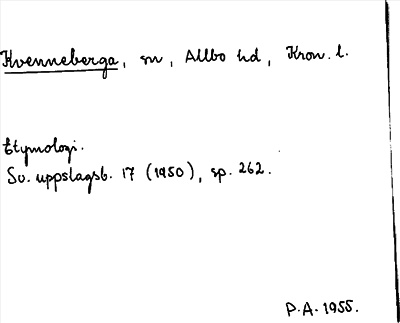 Kvenneberga, sn, Allbo hd, Kron. l.
Etymologi.
Sv. uppslagsb. 17 (1950), sp. 262.
P.A. 1955.